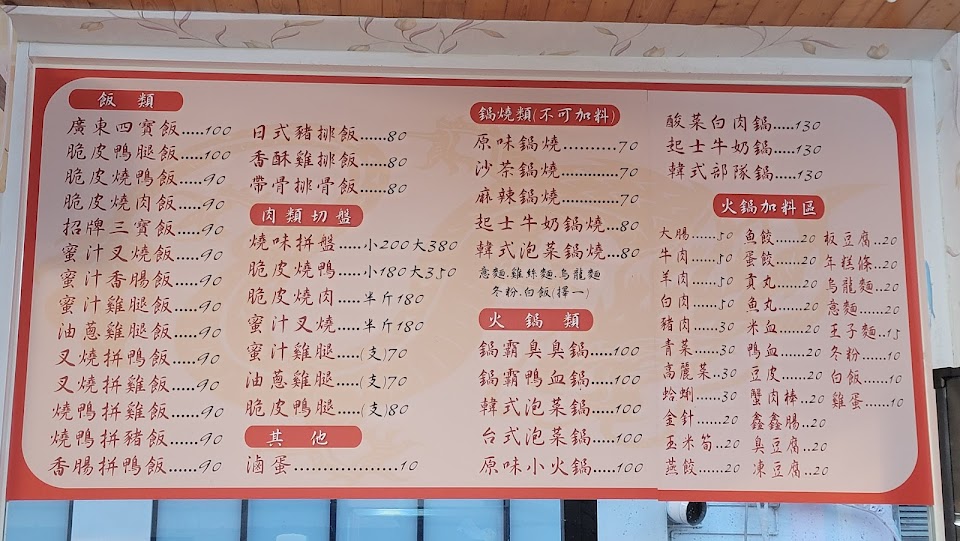 飯類
廣東四寶飯......100
脆皮鴨腿飯......100
脆皮燒鴨飯......90
脆皮燒肉飯......90
招牌三寶飯......90
蜜汁叉燒飯......90
蜜汁香腸飯......90
蜜汁雞腿飯......90
油蔥雞腿飯......90
叉燒拼鴨飯......90
叉燒拼雞飯......90
燒鴨拼雞飯......90
燒鴨拼豬飯......90
香腸拼鴨飯......90
日式豬排飯......80
香酥雞排飯......80
帶骨排骨飯......80
肉類切盤
燒味拼盤.....小200大380
脆皮燒鴨.....小180大350
脆皮燒肉.....半斤180
蜜汁叉燒.....半斤180
蜜汁雞腿.....(支)70
油蔥雞腿.....(支)70
脆皮鴨腿.....(支)80
其他
滷蛋..................10
鍋燒類(不可加料)
原味鍋燒...........70
沙茶鍋燒...........70
麻辣鍋燒...........70
起士牛奶鍋燒...80
韓式泡菜鍋燒...80
意麵.雞絲麵.烏龍麵
冬粉.白飯(擇一)
火鍋類
鍋霸臭臭鍋.....100
鍋霸鴨血鍋.....100
韓式泡菜鍋.....100
台式泡菜鍋.....100
原味小火鍋.....100
酸菜白肉鍋.....130
起士牛奶鍋.....130
韓式部隊鍋.....130
火鍋加料區
大腸......50
牛肉......50
羊肉......50
白肉......50
豬肉......30
青菜......30
高麗菜..30
蛤蜊......30
金針......20
玉米筍..20
燕餃......20
魚餃......20
蛋餃......20
貢丸......20
魚丸......20
米血......20
鴨血......20
豆皮......20
蟹肉棒..20
鑫鑫腸..20
臭豆腐..20
凍豆腐..20
板豆腐..20
年糕條..20
烏龍麵..20
意麵......20
王子麵..15
冬粉......10
白飯......10
雞蛋......10